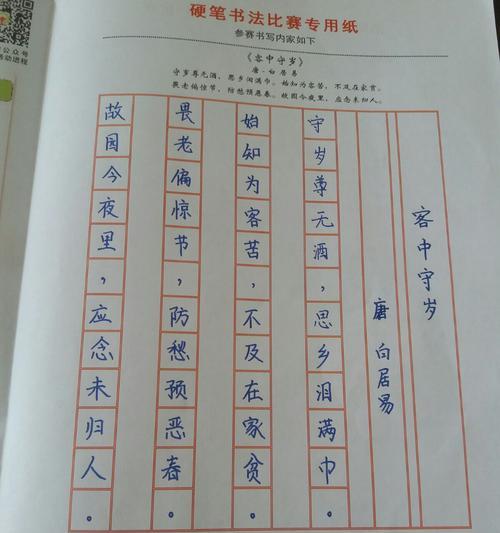 硬笔书法比赛专用纸
参赛书写内家如下
《客中守岁》
唐·白居易
守岁尊无酒，思乡泪满巾。始知为客苦，不及在家贫。
畏老偏惊节，防愁预恶春。故园今夜里，应念未归人。
客中守岁
唐 白居易
守岁尊无酒，思乡泪满巾。
始知为客苦，不及在家贫。
畏老偏惊节，防愁预恶春。
故园今夜里，应念未归人。
公众号
活动进程